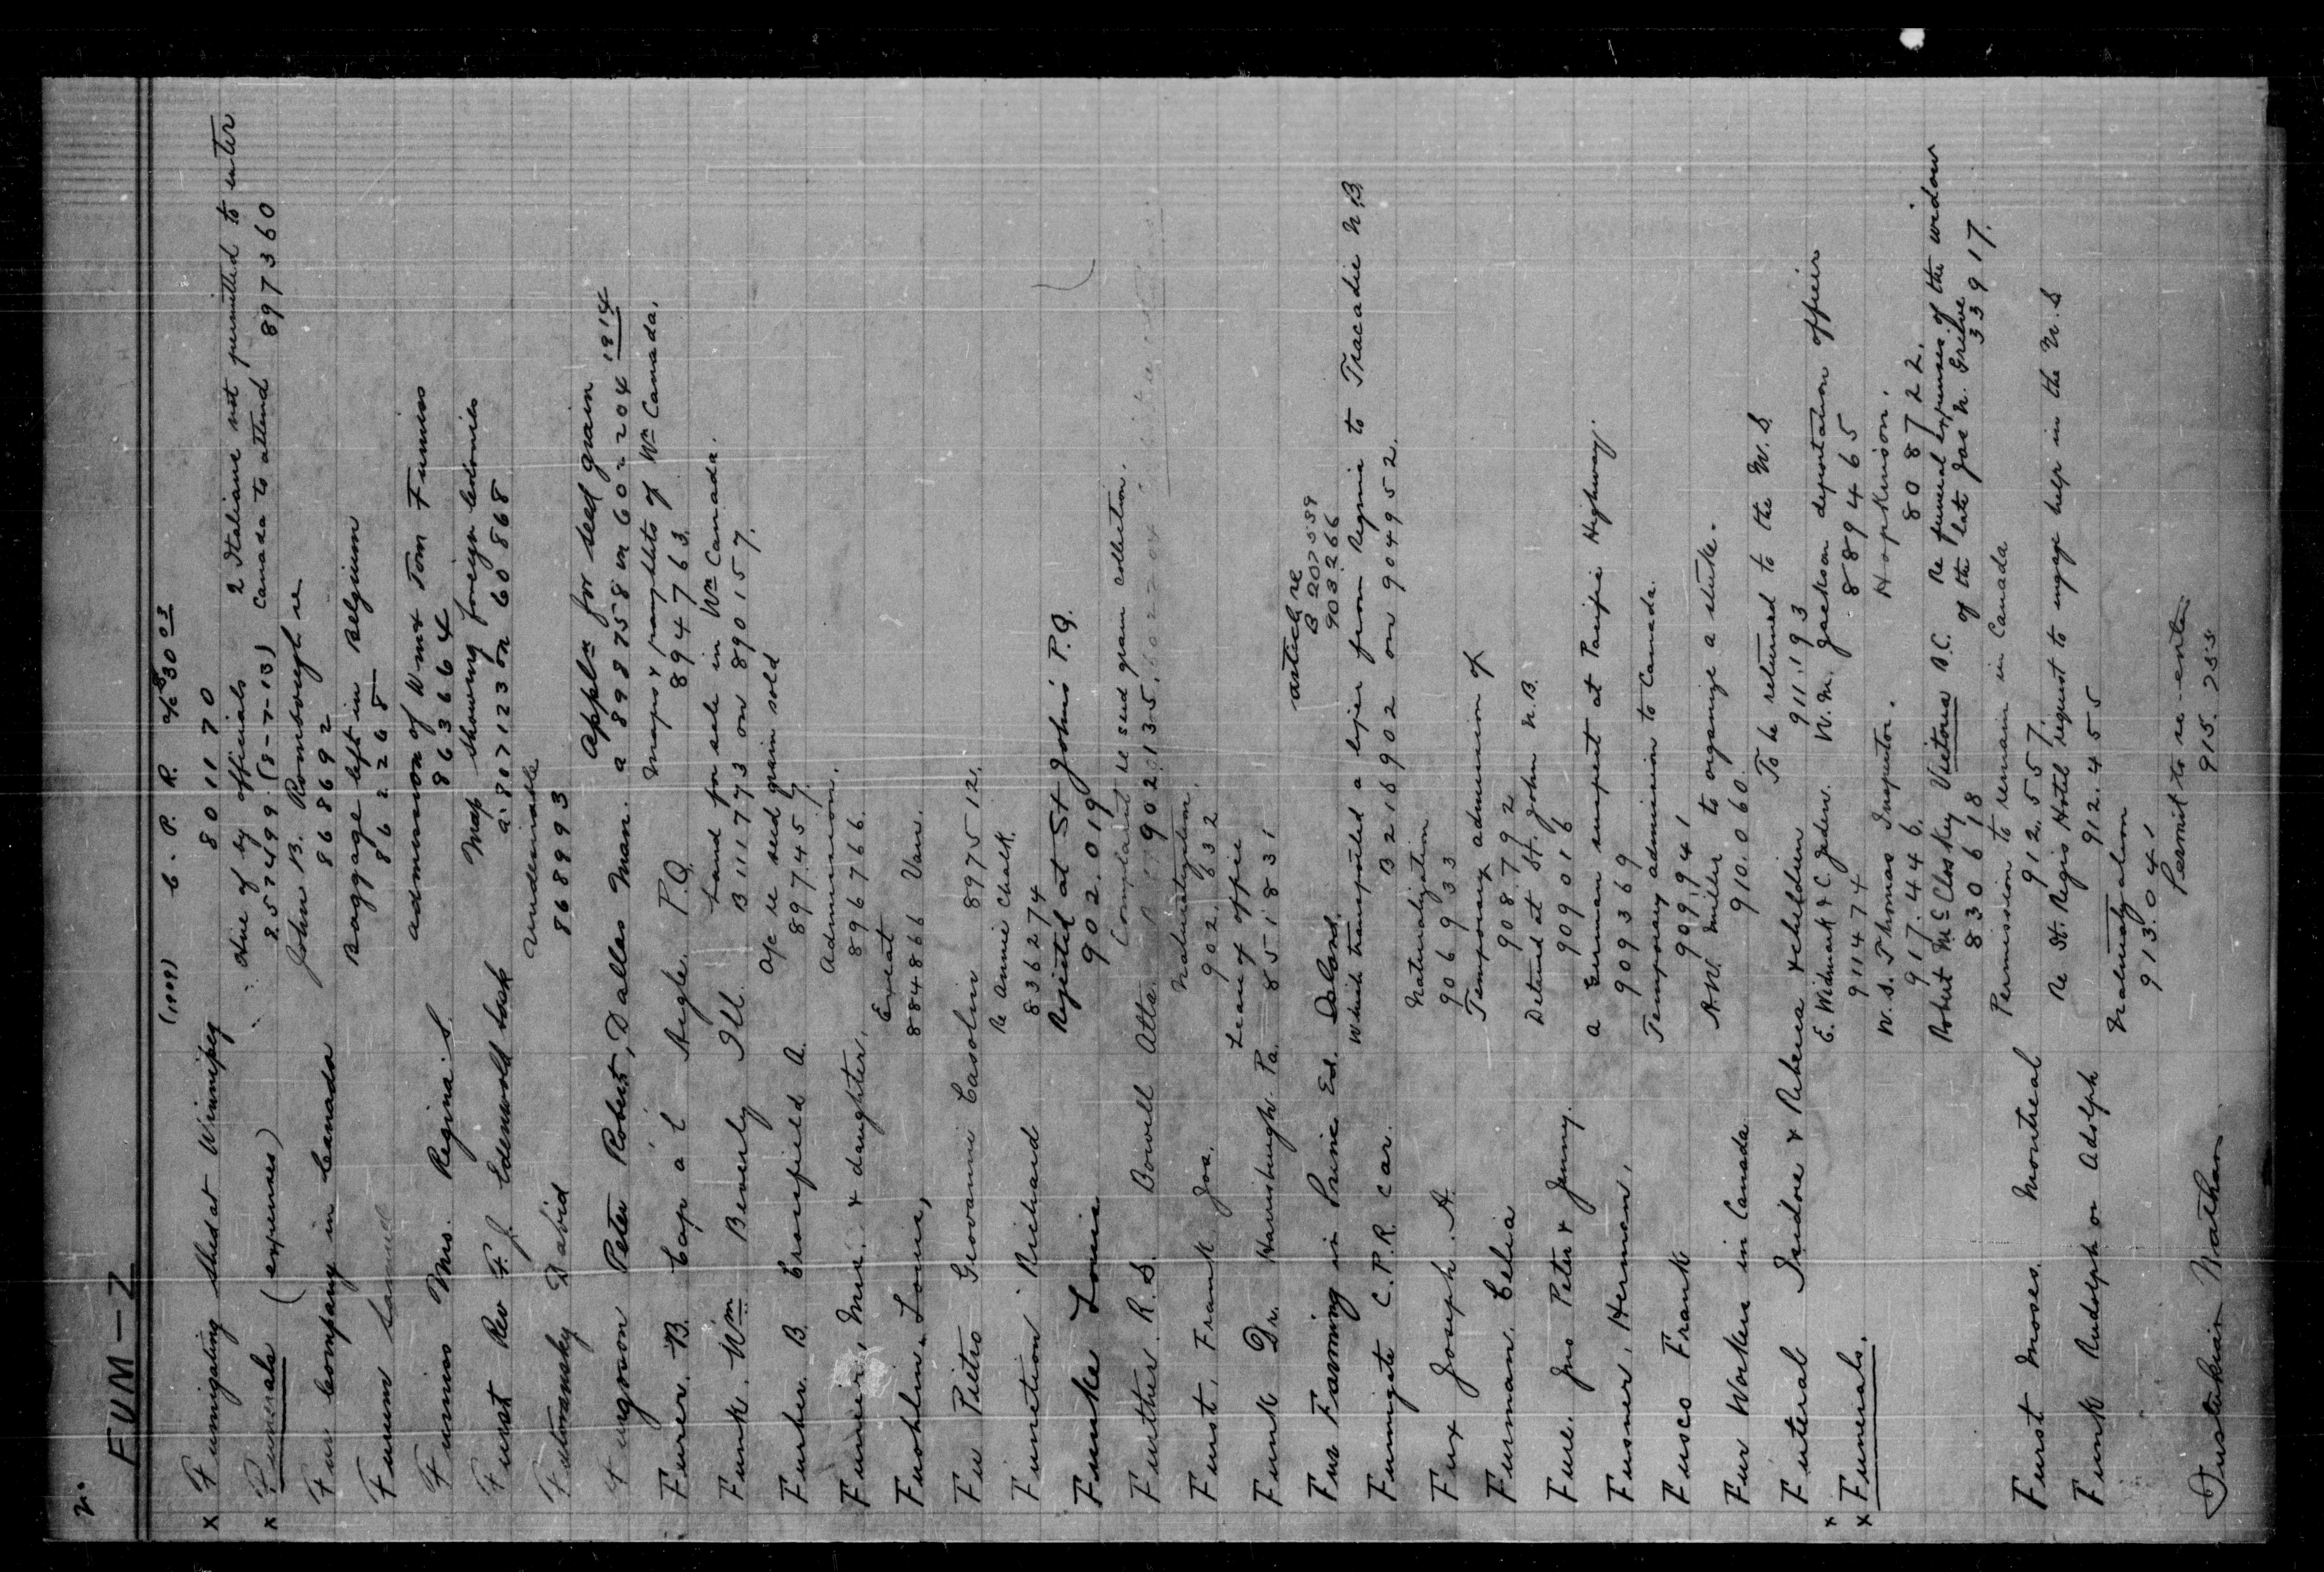 2.
FUM — Z
(1909) C. P. R. a/c $30 03
x Fumigating shed at Winnipeg 801170
2 Italians not permitted to enter
x Funerals (expenses) due of by officials Canada to attend 897360
857499 (8-7-13)
John B. Romborough re
Fur Company in Canada 868692
Baggage left in Belgium
Furum Samuel 862268
admission of Wm & Tom Furniss
Furniss Mrs. Regina S. 863664
Map showing foreign colonies
Furst Rev F. J. Edenwold Sask a 807123 on 60868
Undesirable
Futoransky David 868993
Appln for seed grain
Furgoson Peter Robert, Dallas Man. a 898758 on 602204 1914
Maps & pamphlets of Wn Canada.
Furer. B. Cap a l' Aigle. P.Q. 894763.
Land for sale in Wn Canada.
Funk. Wm Beverly Ill. B 111773 on 890157.
a/c re seed grain sold
Furher. B. Cransfield A. 897457.
Admission.
Funier, Mrs. & daughter, 896766.
Fuohlin. Louis, 884866 Van.
Fu Pietro Giovanni Casolin 897512.
Re Annie Chalk.
Function Richard 836274
Rejected at St Johns P.Q.
Funke Louis 902.019
Complaint re seed grain collection.
Further. R. S. Bowell Alta. 902135.
Naturalization.
Furst, Frank Jos. 902.632
Leave of office
Funk Dr. Harrisburgh. Pa. 851831
article re
B 207559
Fur Farming in Prince Ed. Island. 903266
Which transported a leper from Regina to Tracadie N.B.
Fumigate C.P.R. car. B 216902 on 904952.
Naturalization
Fux Joseph. A. 906933
Temporary admission of
Furman, Celia 908.792
Detained at St. John N.B.
Fure. Jno Peter & Jenny. 909016
a German suspect at Pacific Highway.
Fusner, Herman, 909369
Temporary admission to Canada.
Fusco Frank 909,941
A.W. Miller to organize a strike.
Fur Workers in Canada 910.060.
To be returned to the U.S.
Futeral Isidore & Rebecca & children 911.193
x E. Widmark & C. Jeden. W.M. Jackson deportation officer
x Funerals. 911474 889465
W.S. Thomas Inspector. Hopkinson.
917.446. 808722.
Robert McCloskey Victoria B.C. Re funeral expenses of the widow
830618 of the late Jas N. Grieve 33917.
Permission to remain in Canada
Furst Moses. Montreal 912.557.
Re St. Regis Hotel request to engage help in the U.S
Funk Rudolph or Adolph 912.455
Naturalization
913.041
Permit to re-enter
Nathan 915.255